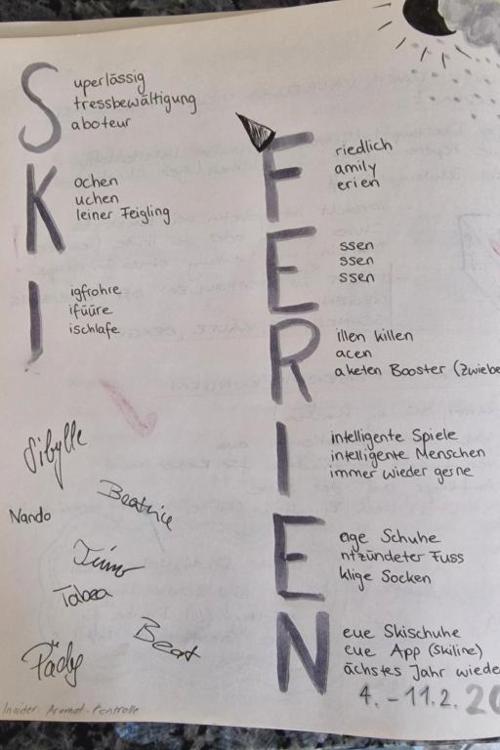 S
uperlässig
tressbewältigung
aboteur
K
ochen
uchen
leiner Feigling
I
igfrohre
ifüüre
ischlafe
F
riedlich
amily
erien
E
ssen
ssen
ssen
R
illen killen
acen
aketen Booster (Zwiebe
I
intelligente Spiele
intelligente Menschen
immer wieder gerne
E
ege Schuhe
ntzündeter Fuss
klige Socken
N
eue Skischuhe
eue App (Skiline)
ächstes Jahr wiede
4. - 11.2. 20
Sibylle
Beatrice
Nando
Timo
Tabea
Beat
Pädy
Insider: Aromat-Kontrolle